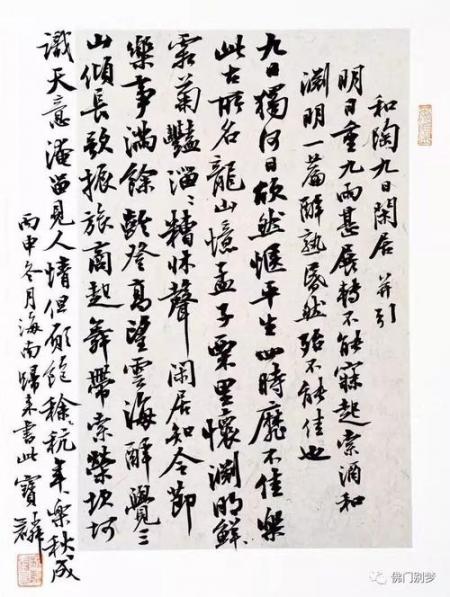 和陶九日閑居 并引
明日重九雨甚展轉不能寐起索酒和
淵明一篇醉熟昏然殆不能佳也
九日獨何日欣然愜平生四時靡不佳樂
此古所名龍山憶孟子栗里懷淵明鮮
霜菊豔溜〻糟牀聲閑居知令節
樂事滿餘齡登高望雲海醉覺三
山傾長歌振旅商起舞帶索榮坎坷
識天意淹留見人情但願飽稌秔年樂秋成
丙申冬月海南歸来書此寶麟
佛门别梦